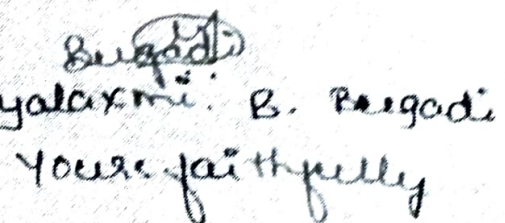 Bugadi
yalaxmi. B. Bugadi
Yours faithfully